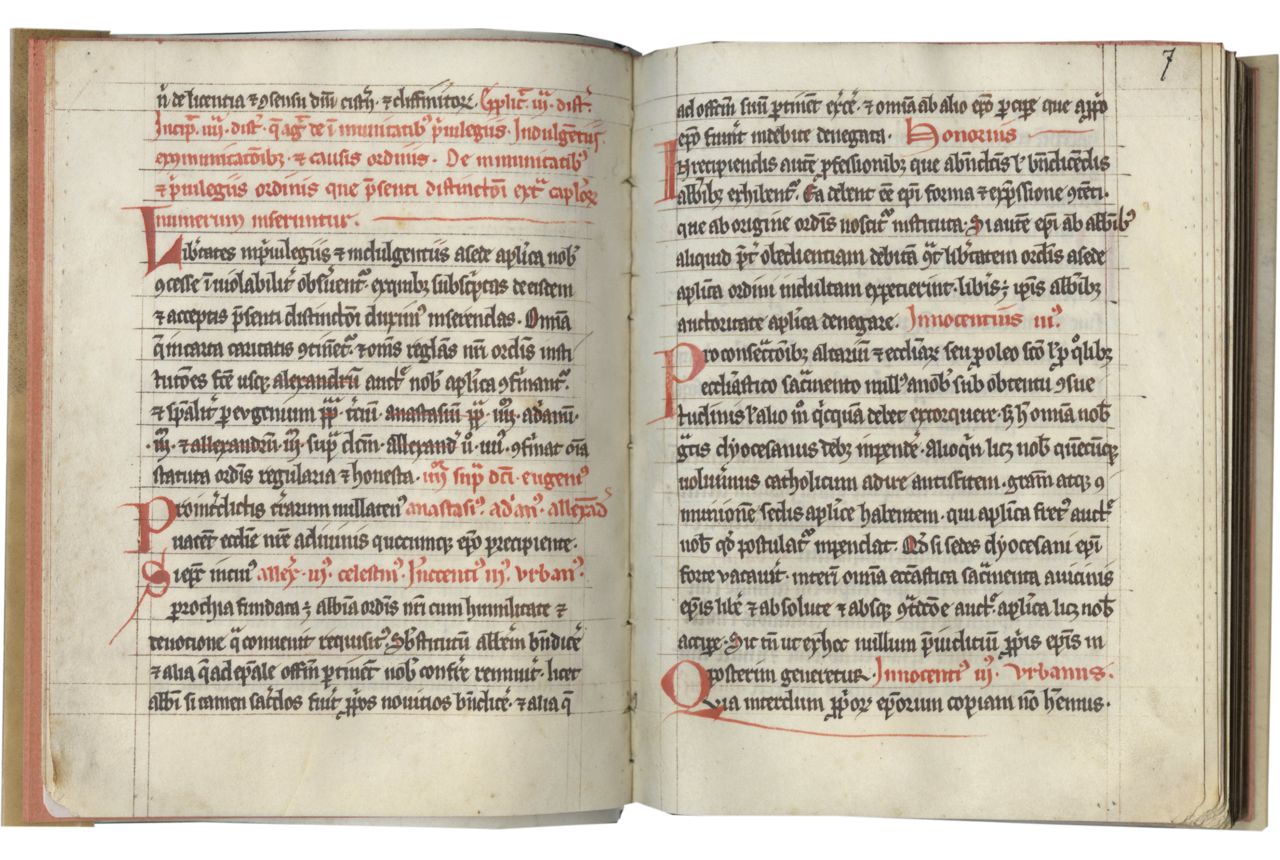 n̄ de licentia ⁊ ꝯsensu dn̄i cisterc̄ ⁊ diffinitoꝝ. Explic̄. iij. dist̄.
Incip̄. iiij. dist̄. q̄ aḡ de īmunitatib⁹ p̄uilegiis. Indulgentiis
exꝯmunicatōnibꝫ. ⁊ causis ordinis. De īmunitatib⁹
⁊ p̄uilegiis ordinis que p̄senti distinctōni ext͛ caplōꝝ
numerum inseruntur.
Lib͛tates īp͛uilegiis ⁊ indulgentiis a sede aplica nob̄
ꝯcesse īuiolabilit͛ obs͛uent̄. ex quibꝫ subsc͛ptas de eisdem
⁊ acceptis p̄senti distinctōni duxim⁹ inserendas. Omīa
q̄ in carta caritatis ꝯtinet̄. ⁊ om̄s regl̄as nr̄i ordīs insti
tutōnes fc̄e usqꝫ alexandrū auct͛. nob̄ aplica ꝯfirmant̄.
⁊ sp̄alit͛ per eugenium pp̄. t͛ciū. anastasiū pp̄. iiij. ad͛anū.
iiij. ⁊ allexandrū. iij. sup̄ dc̄m. Allexand͛ u͛o. iiij. ꝯfirmat oīa
statuta ordīs regularia ⁊ honesta. iiij sup̄ dc̄i. eugeni⁹
Pro int͛dictis t͛rarum nullaten⁹ anastasi⁹. ad͛an⁹. allexād͛
uacēt ecclīe nr̄e a diuinis quocumqꝫ ep̄o precipiente.
Si ep̄c in cui⁹ allex͛. iij⁹. celestin⁹. Inn̄centi⁹ iij⁹. vrban⁹.
perochia fundata ē abb̄ia ordīs nr̄i cum humilitate ⁊
deuotione q̄ conuenit requisit⁹. Sb̄stitutū abb̄em bn̄dic͛e
⁊ alia q̄ ad ep̄ale offm̄ ꝑtinēt nob̄ conf͛re renuit. licet
abb̄i si tamen sac͛dos fu͛it ꝓprios nouitios bn̄dic͛e. ⁊ alia q̄
7
ad offm̄ suū ꝑtinent ex͛c͛e. ⁊ omīa ab alio ep̄o ꝑcipe que a ꝓprio
ep̄o fu͛int indebite denegata. Honorius
In recipiendis autē ꝓfessionibꝫ que a bn̄dictis ł bn̄dicendis
abb̄ibꝫ exhibent̄. Ea debent ēē ep̄i forma ⁊ exp̄ssione ꝯtēti.
que ab origine ordīs noscit̄ instituta. Si autē ep̄i ab abb̄ib⁹
aliquid p̄t obedientiam debitā ꝯt͛ lib͛tatem ordīs a sede
aplica ordini indultam expetierint. lib͛ is ē ip̄is abb̄ibꝫ
auctoritate aplica denegare. Innocentius iij⁹.
Pro consec͛tōnibꝫ altarium ⁊ eccl̄iaꝝ seu ꝓ oleo sc̄o ł ꝓ q̄libꝫ
eccl̄iastico sac͛mento null⁹ a nob̄ sub obtentu ꝯsue
tudinis ł alio m͛o q͛cquā debet extorquere. Sꝫ h͛ omīa nob̄
g͛tis dyocesanus debꝫ inpend͛e. Alioq̄n licꝫ nob̄ quēcūqꝫ
uolu͛imus catholicum adire antistitem. gr̄am atqꝫ ꝯ
munionē sedis aplice habentem. qui aplica fret⁹ auct͛.
nob̄ qd̄ postulat̄ inpendat. Qd̄ si sedes dyocesani ep̄i
forte vacau͛it. interī omīa eccl̄iastica sac͛menta a uicinis
ep̄is lib͛e ⁊ absolute ⁊ absqꝫ ꝯt͛dictōe auct͛. aplica licꝫ nob̄
accip͛e. Sic tn̄ ut ex hoc nullum p̄iudiciū ꝓpriis ep̄is in
posterum generetur. Innocenti⁹ iij⁹. Vrbanus.
Quia interdum ꝓprioꝝ ep̄orum copiam nō hēmus.